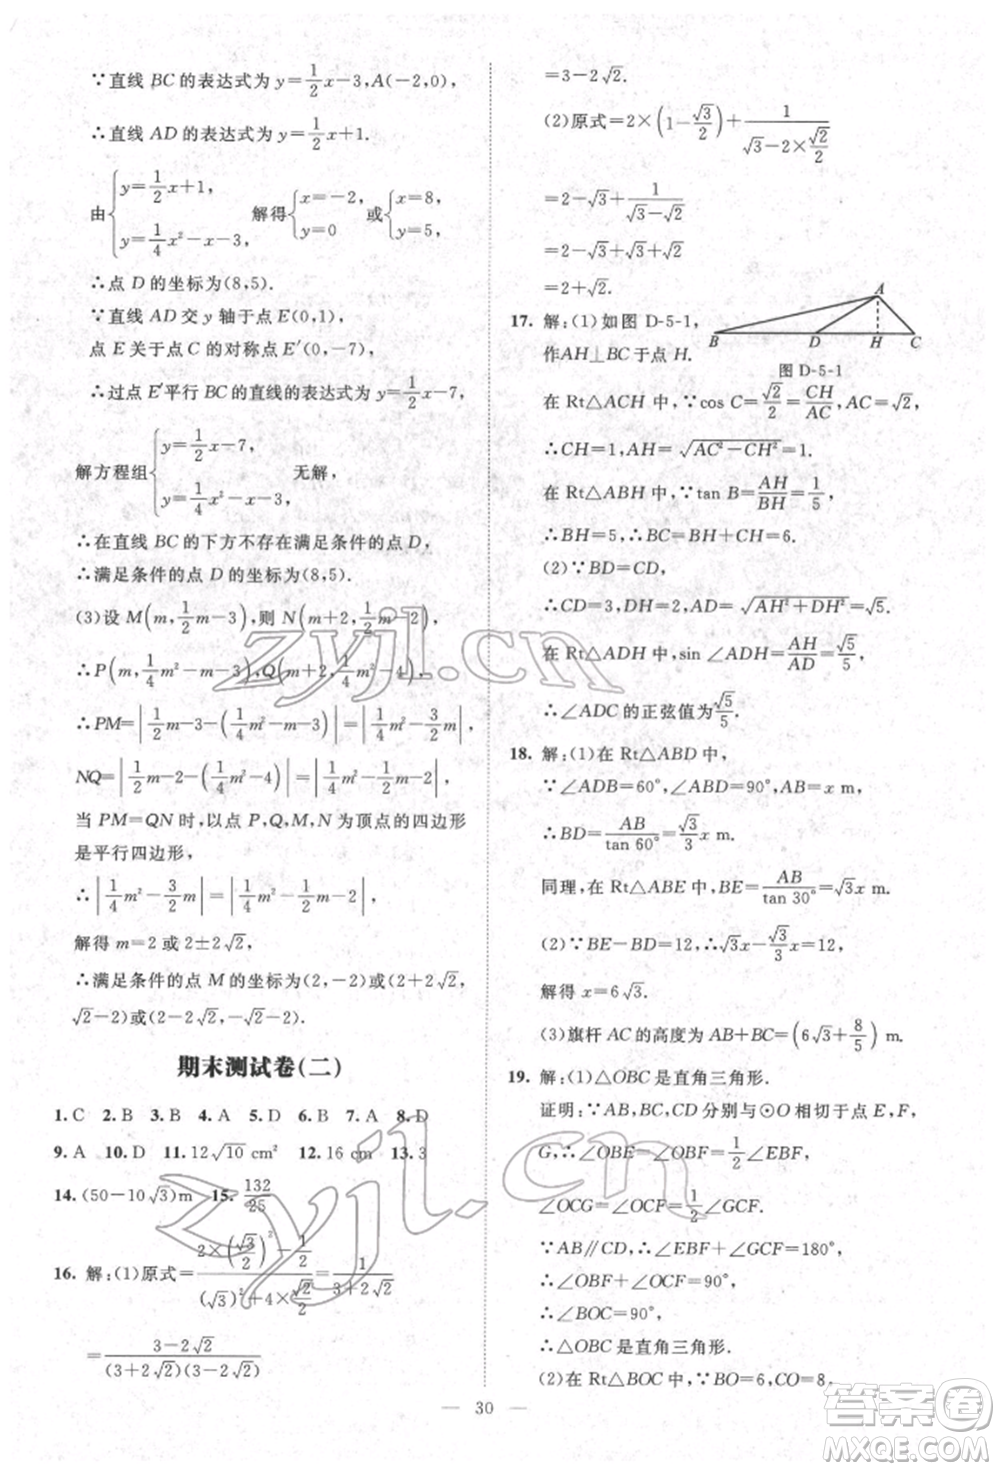 ∵直线 BC 的表达式为 y=1/2x-3,A(-2,0),
∴直线 AD 的表达式为 y=1/2x+1.
由{y=1/2x+1, y=1/4x²-x-3, 解得{x=-2, y=0 或{x=8, y=5.
∴点 D 的坐标为(8,5).
∵直线 AD 交 y 轴于点 E(0,1),
点 E 关于点 C 的对称点 E′(0,-7),
∴过点 E′平行 BC 的直线的表达式为 y=1/2x-7,
解方程组{y=1/2x-7, y=1/4x²-x-3, 无解,
∴在直线 BC 的下方不存在满足条件的点 D,
∴满足条件的点 D 的坐标为(8,5).
(3)设 M(m,1/2m-3),则 N(m+2,1/2m-2),
∴P(m,1/4m²-m-3),Q(m+2,1/4m²-4),
∴PM=|1/2m-3-(1/4m²-m-3)|=|1/4m²-3/2m|,
NQ=|1/2m-2-(1/4m²-4)|=|1/4m²-1/2m-2|,
当 PM=QN 时,以点 P,Q,M,N 为顶点的四边形
是平行四边形,
∴|1/4m²-3/2m|=|1/4m²-1/2m-2|,
解得 m=2 或 2±2√2,
∴满足条件的点 M 的坐标为(2,-2)或(2+2√2,
√2-2)或(2-2√2,-√2-2).
期末测试卷(二)
1.C 2.B 3.B 4.A 5.D 6.B 7.A 8.D
9.A 10.D 11.12√10 cm² 12.16 cm 13.3
14.(50-10√3)m 15.132/25
16.解:(1)原式=(2×(√3/2)²-1/2)/((√3)²+4×√2/2)=1/(3+2√2)
=(3-2√2)/((3+2√2)(3-2√2))
=3-2√2.
(2)原式=2×(1-√3/2)+1/(√3-2×√2/2)
=2-√3+1/(√3-√2)
=2-√3+√3+√2
=2+√2.
17.解:(1)如图 D-5-1,
作AH⊥BC于点 H.
A
B D H C
图 D-5-1
在 Rt△ACH 中,∵cos C=√2/2=CH/AC,AC=√2,
∴CH=1,AH=√(AC²-CH²)=1.
在 Rt△ABH 中,∵tan B=AH/BH=1/5,
∴BH=5,∴BC=BH+CH=6.
(2)∵BD=CD,
∴CD=3,DH=2,AD=√(AH²+DH²)=√5.
在 Rt△ADH 中,sin ∠ADH=AH/AD=√5/5,
∴∠ADC的正弦值为√5/5.
18.解:(1)在 Rt△ABD 中,
∵∠ADB=60°,∠ABD=90°,AB=x m,
∴BD=AB/tan 60°=√3/3x m.
同理,在 Rt△ABE 中,BE=AB/tan 30°=√3x m.
(2)∵BE-BD=12,∴√3x-√3/3x=12,
解得 x=6√3.
(3)旗杆 AC 的高度为 AB+BC=(6√3+8/5) m.
19.解:(1)△OBC 是直角三角形.
证明:∵AB,BC,CD 分别与⊙O 相切于点 E,F,
G,∴∠OBE=∠OBF=1/2∠EBF,
∠OCG=∠OCF=1/2∠GCF.
∵AB∥CD,∴∠EBF+∠GCF=180°,
∴∠OBF+∠OCF=90°,
∴∠BOC=90°,
∴△OBC是直角三角形.
(2)在 Rt△BOC 中,∵BO=6,CO=8,
30
zyjl.cn
zyjl.cn
答案圈
MXQE.COM